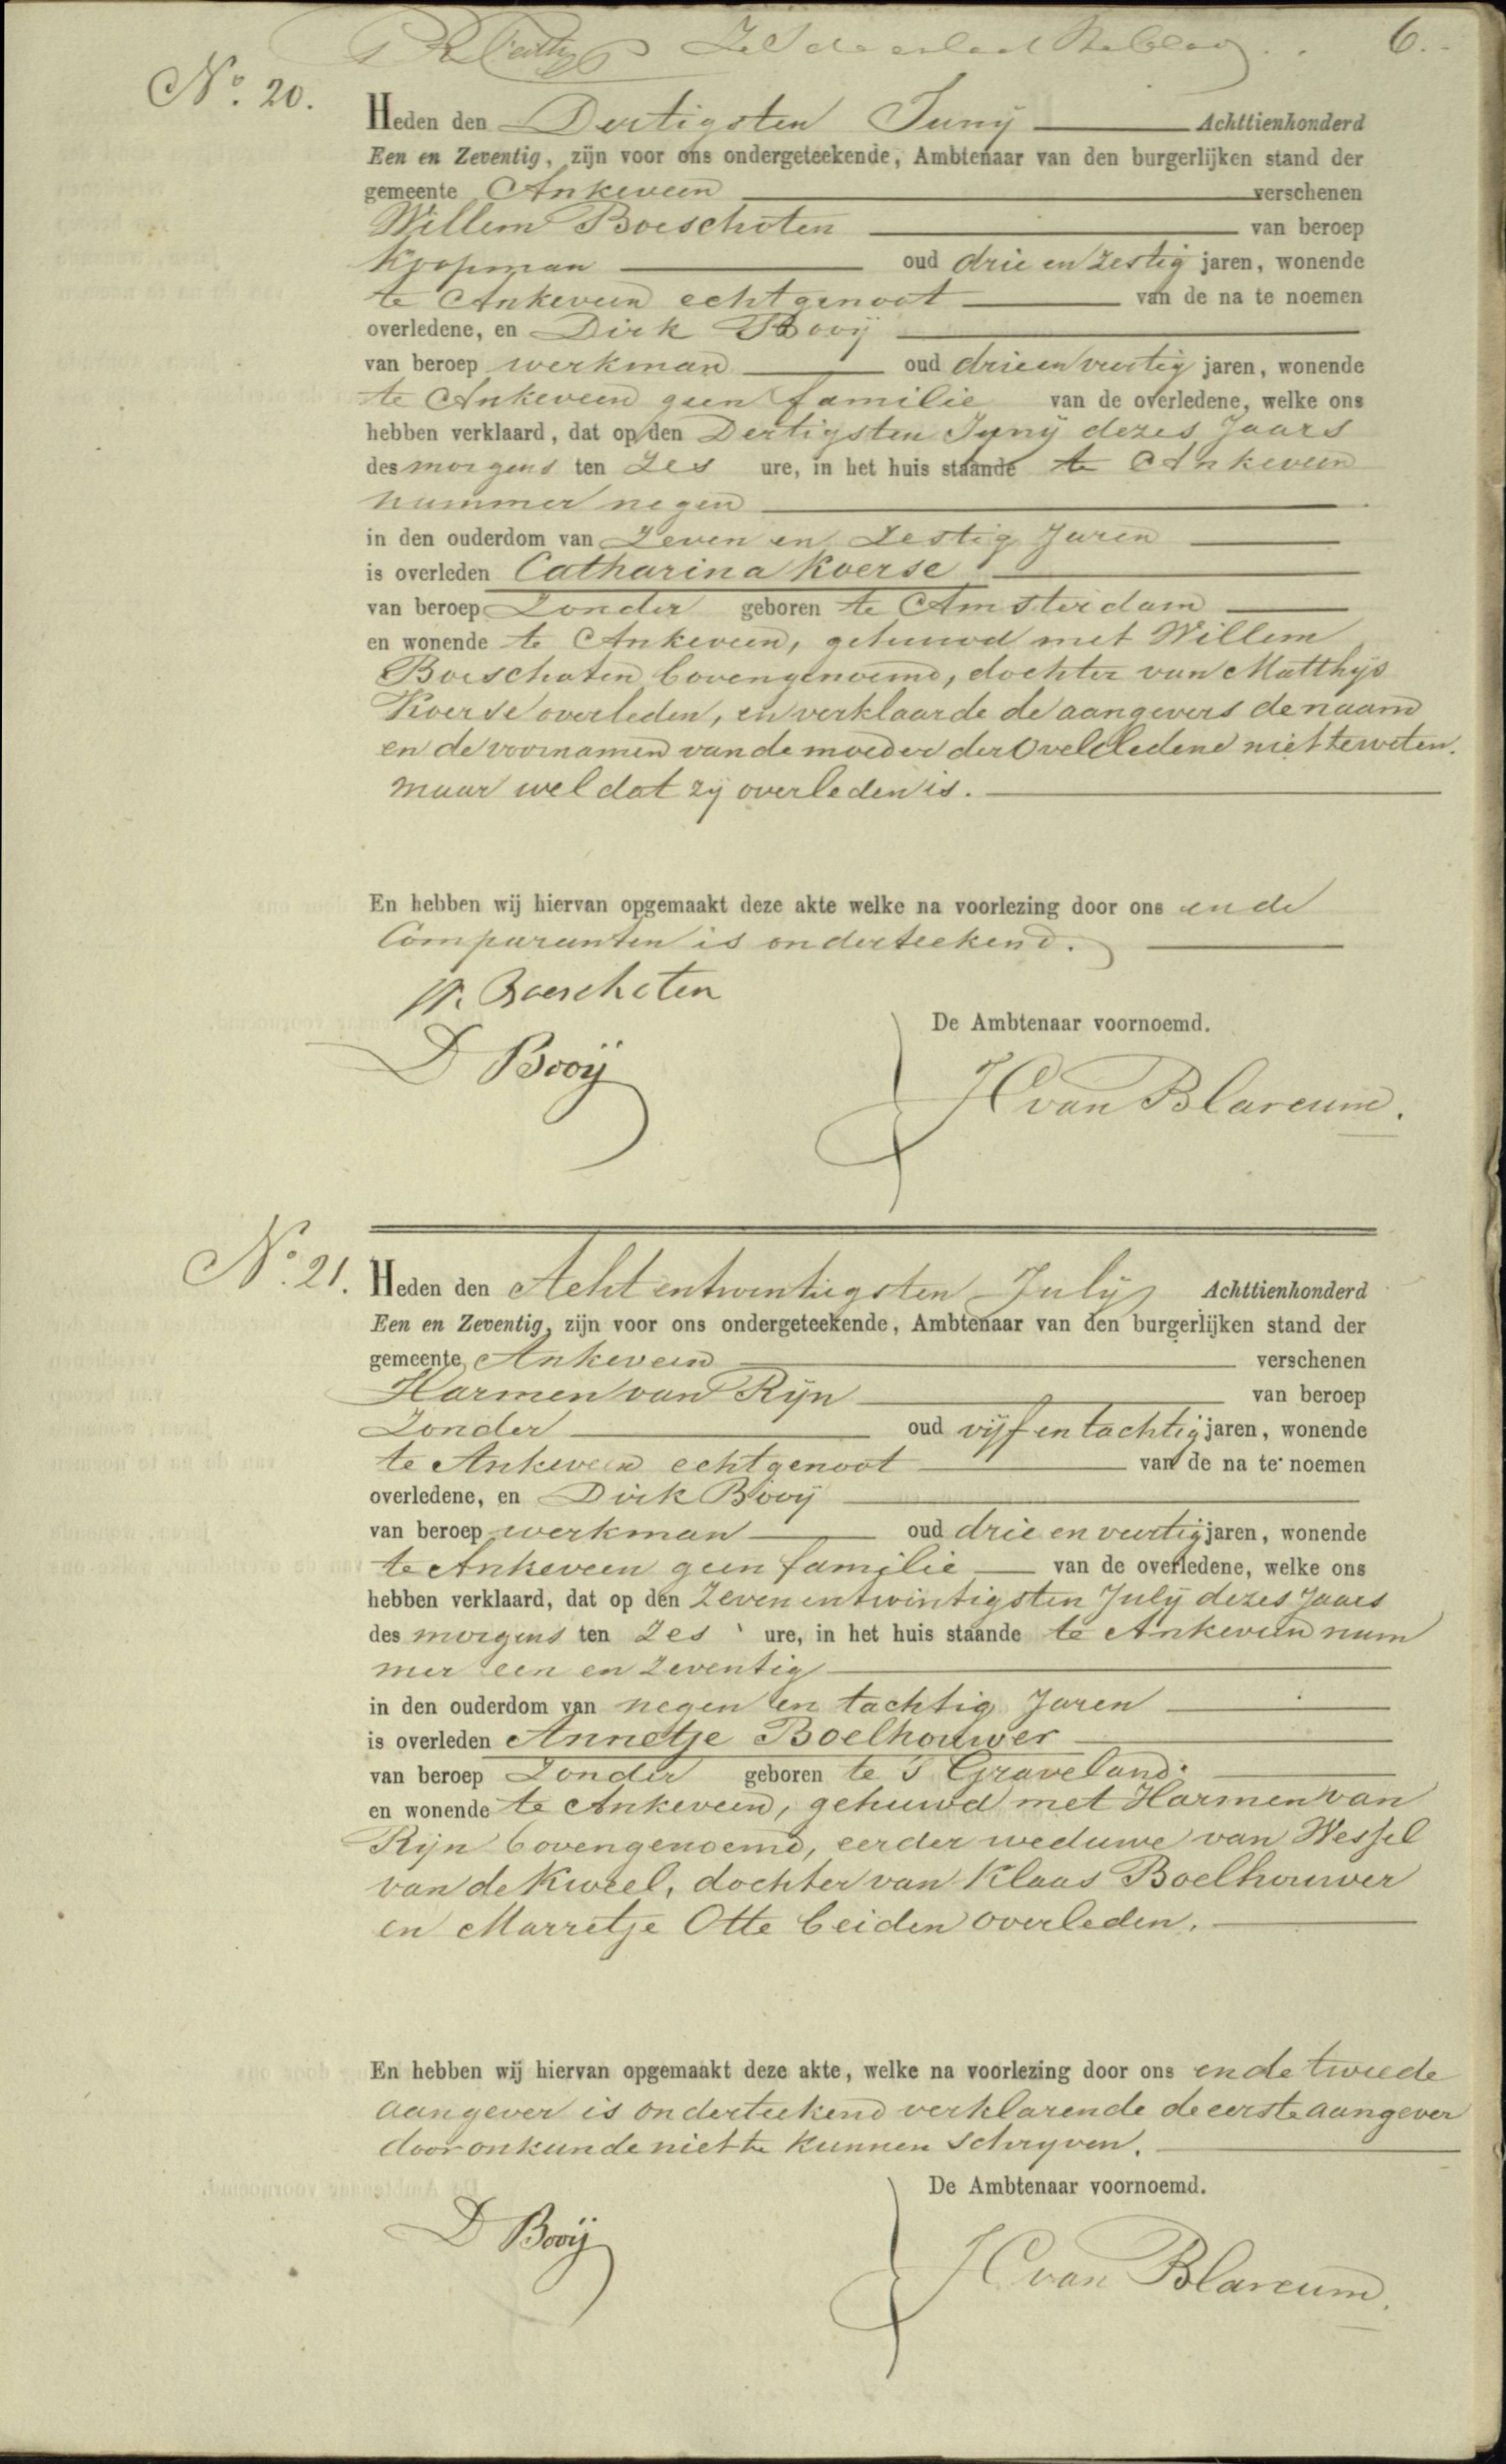 6.
No. 20.
Heden den Dertigsten Juny Achttienhonderd
Een en Zeventig, zijn voor ons ondergeteekende, Ambtenaar van den burgerlijken stand der
gemeente Ankeveen verschenen
Willem Boeschoten van beroep
Koopman oud drie en zestig jaren, wonende
te Ankeveen echtgenoot van de na te noemen
overledene, en Dirk Booij
van beroep werkman oud drie en veertig jaren, wonende
te Ankeveen geen familie van de overledene, welke ons
hebben verklaard, dat op den Dertigsten Juny dezes Jaars
des morgens ten Zes ure, in het huis staande te Ankeveen
nummer negen
in den ouderdom van Zeven en Zestig Jaren
is overleden Catharina Koerse
van beroep Zonder geboren te Amsterdam
en wonende te Ankeveen, gehuwd met Willem
Boeschoten bovengenoemd, dochter van Matthijs
Koerse overleden, en verklaarde de aangevers de naam
en de voornamen van de moeder der Overledene niet te weten.
maar wel dat zij overleden is.
En hebben wij hiervan opgemaakt deze akte welke na voorlezing door ons en de
Comparanten is onderteekend.
W. Boeschoten
De Ambtenaar voornoemd.
D Booij
H van Blarcum.
No. 21.
Heden den Acht en twintigsten July Achttienhonderd
Een en Zeventig, zijn voor ons ondergeteekende, Ambtenaar van den burgerlijken stand der
gemeente Ankeveen verschenen
Harmen van Rijn van beroep
Zonder oud vijf en tachtig jaren, wonende
te Ankeveen echtgenoot van de na te noemen
overledene, en Dirk Booij
van beroep werkman oud drie en veertig jaren, wonende
te Ankeveen geen familie van de overledene, welke ons
hebben verklaard, dat op den Zeven en twintigsten July dezes Jaars
des morgens ten Zes ure, in het huis staande te Ankeveen num
mer een en zeventig
in den ouderdom van negen en tachtig Jaren
is overleden Annetje Boelhouwer
van beroep Zonder geboren te 's Graveland.
en wonende te Ankeveen, gehuwd met Harmen van
Rijn bovengenoemd, eerder weduwe van Wessel
van de Kweel, dochter van Klaas Boelhouwer
en Marretje Otte beiden overleden.
En hebben wij hiervan opgemaakt deze akte, welke na voorlezing door ons en de tweede
aangever is onderteekend verklarende de eerste aangever
door onkunde niet te kunnen schryven.
De Ambtenaar voornoemd.
D Booij
H van Blarcum.